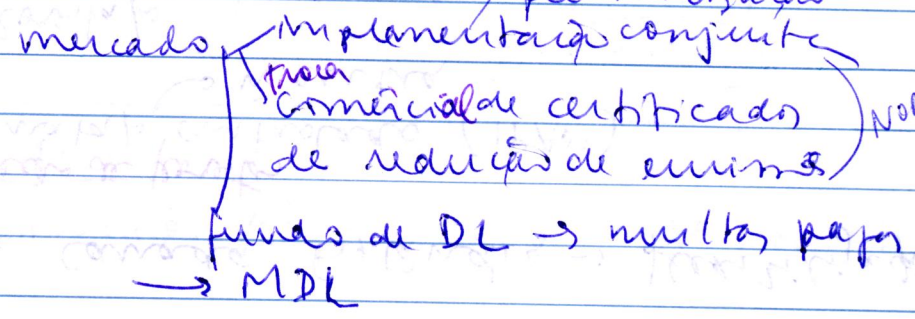 mercado implementação conjunta
troca
comercial de certificados
de redução de emissões
fundo de DL → multas pagas
→ MDL